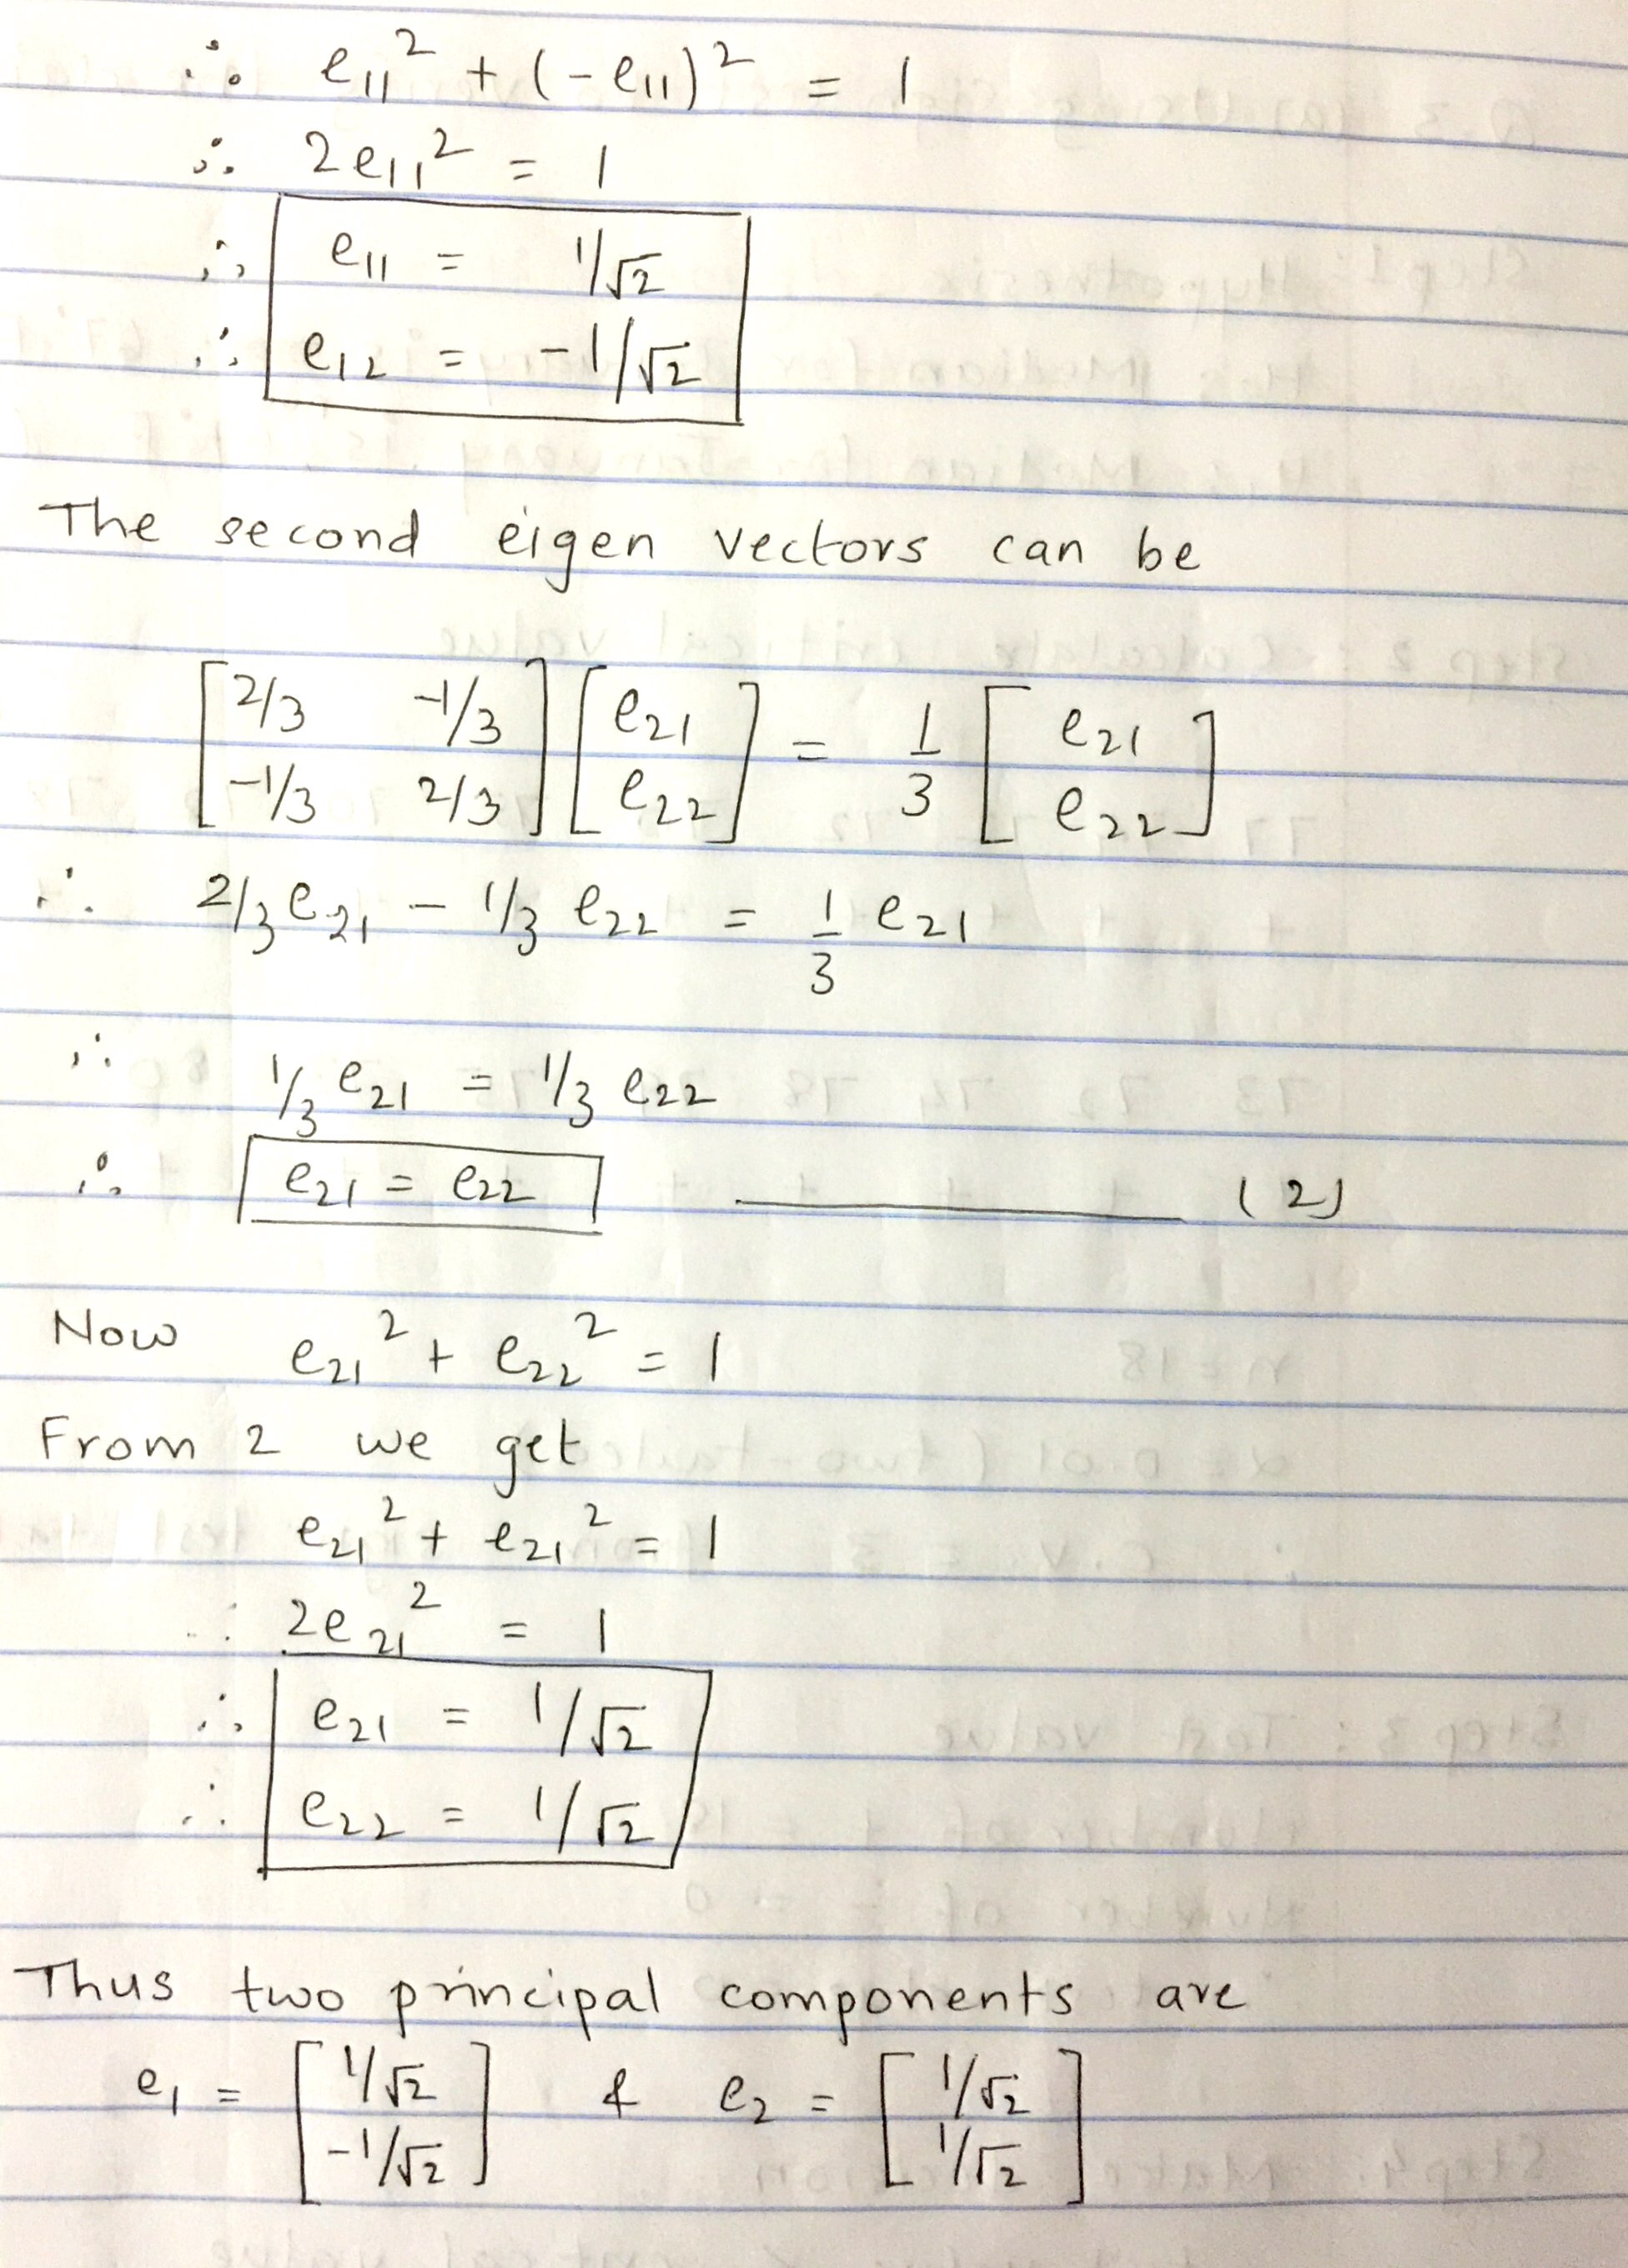 ∴ e₁₁² + (-e₁₁)² = 1
∴ 2e₁₁² = 1
∴ e₁₁ = 1/√2
∴ e₁₂ = -1/√2
The second eigen vectors can be
[2/3 -1/3; -1/3 2/3] [e₂₁; e₂₂] = 1/3 [e₂₁; e₂₂]
∴ 2/3 e₂₁ - 1/3 e₂₂ = 1/3 e₂₁
∴ 1/3 e₂₁ = 1/3 e₂₂
∴ e₂₁ = e₂₂ ——— (2)
Now e₂₁² + e₂₂² = 1
From 2 we get
e₂₁² + e₂₁² = 1
∴ 2e₂₁² = 1
∴ e₂₁ = 1/√2
∴ e₂₂ = 1/√2
Thus two principal components are
e₁ = [1/√2; -1/√2] & e₂ = [1/√2; 1/√2]